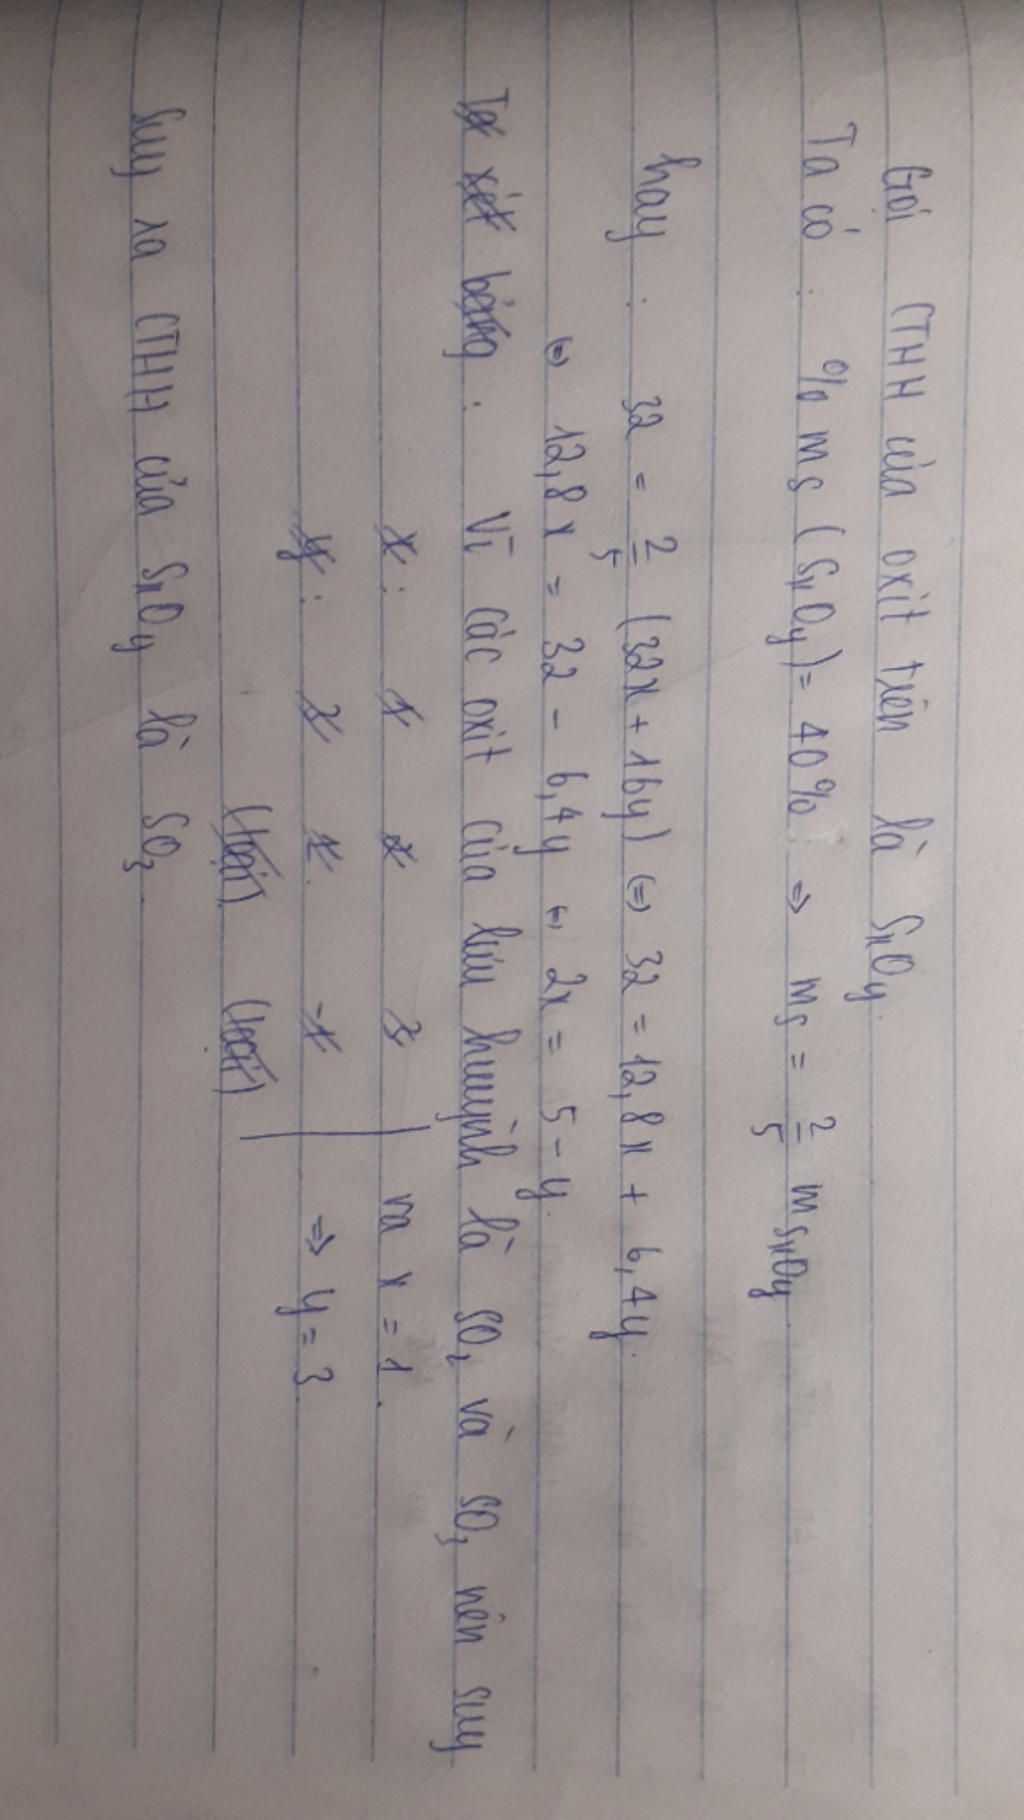 Gọi CTHH của oxit trên là SxOy.
Ta có : % mS (SxOy) = 40% => mS = 2/5 mSxOy
hay : 32 = 2/5 (32x + 16y) (=) 32 = 12,8x + 6,4y.
(=) 12,8x = 32 - 6,4y (=) 2x = 5 - y.
Ta xét bảng : Vì các oxit của lưu huỳnh là SO2 và SO3 nên suy
x : 1 2 3 ra x = 1.
y : 3 1 -1 => y = 3
(loại) (loại)
Suy ra CTHH của SxOy là SO3.